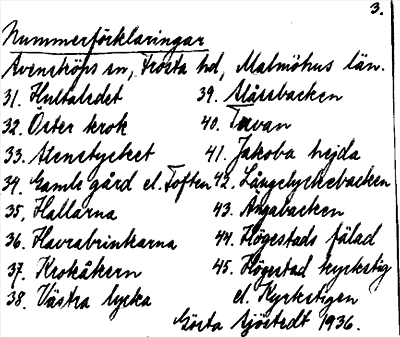 3.
Nummerförklaringar
Avenströps sn, Frosta hd, Malmöhus län.
31. Hultaledet
32. Öster krok
33. Alenstycket
34. Gamle gård el. Toften
35, Hallarna
36. Havrabrinkarna
37. Krokåkern
38. Västra lycka
39. Alåssbacken
40. Tavan
41. Jakoba hejda
42. Långelyckebacken
43. Ängabacken
44. Högestads fälad
45. Högestad kyrkstig
el. Kyrkstigen
Gösta Sjöstedt 1936.